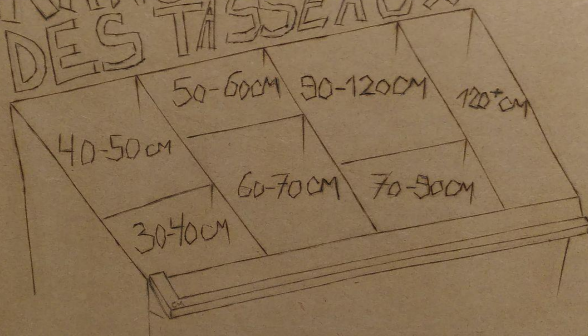 DES TISSEAUX
50-60CM
90-120CM
120+CM
40-50CM
60-70CM
70-90CM
30-40CM